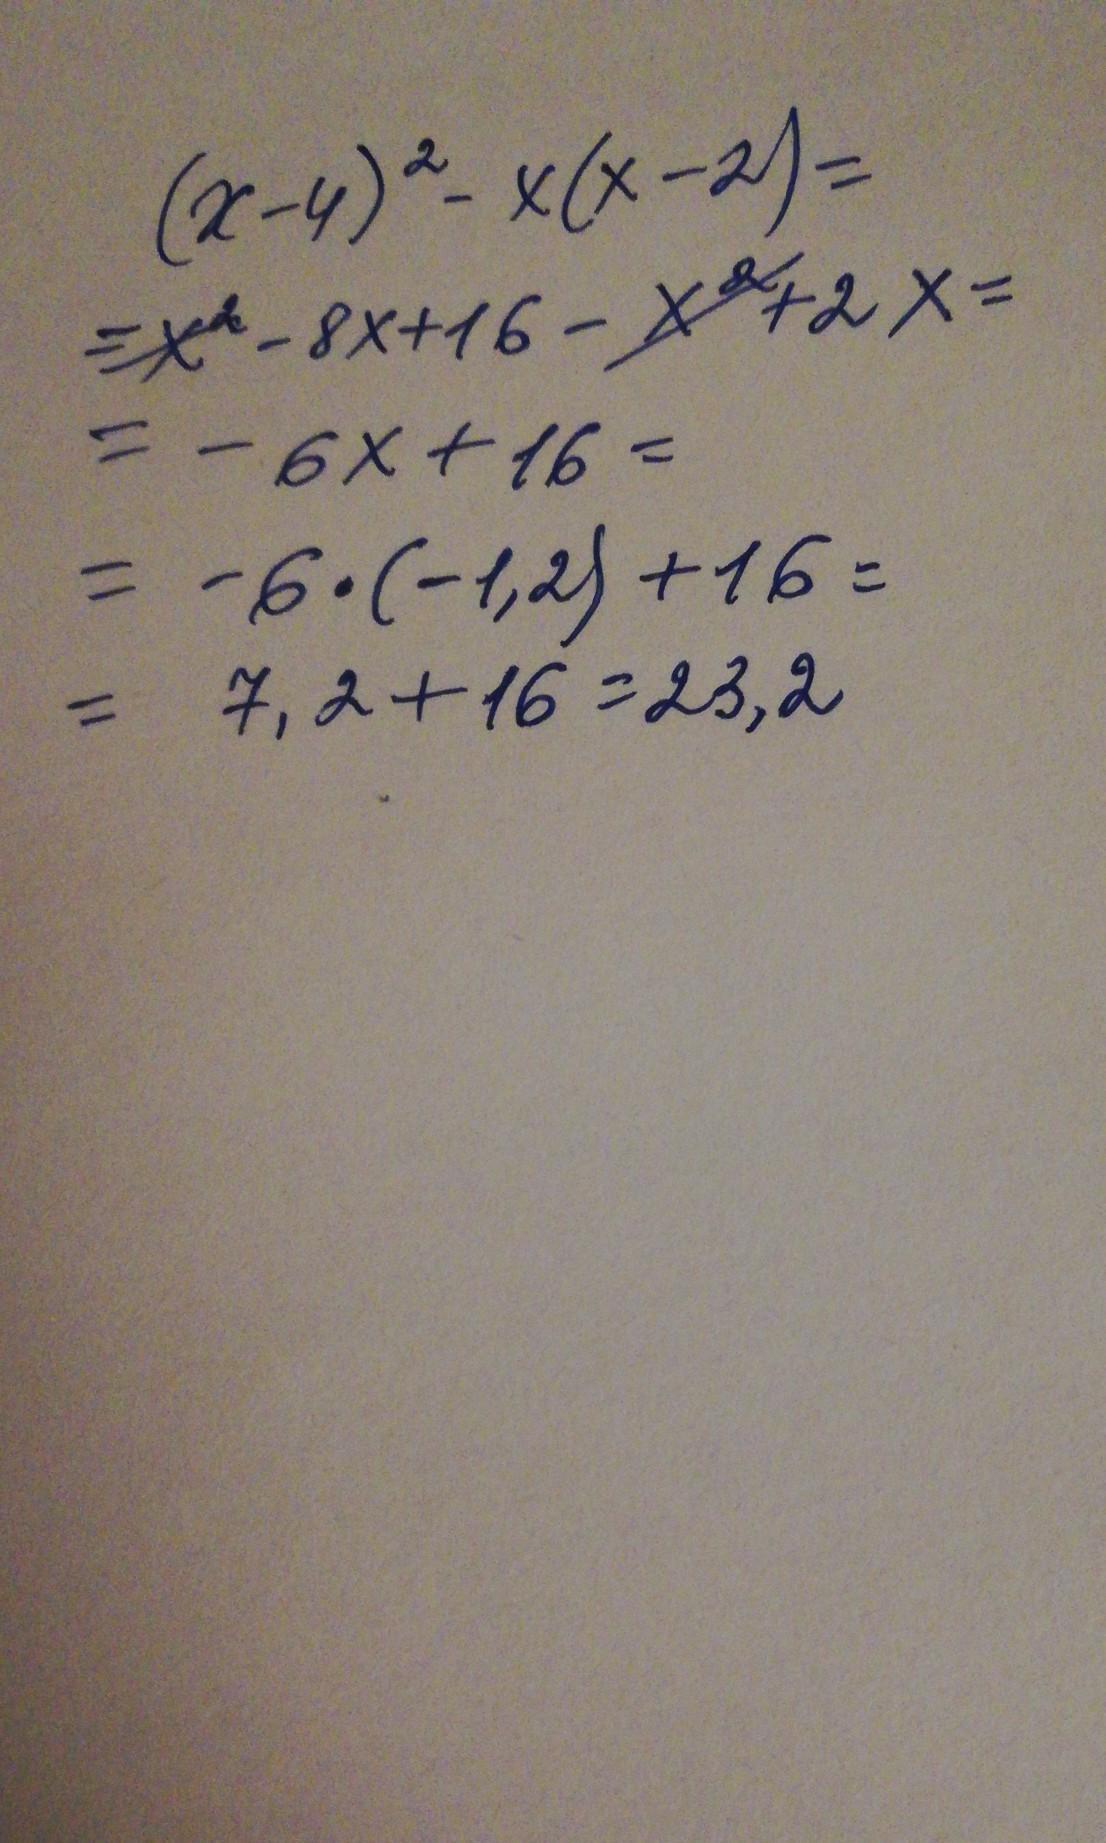 (x-4)² - x(x-2)=
=x²-8x+16-x²+2x=
= -6x+16=
= -6·(-1,2)+16=
= 7,2+16=23,2